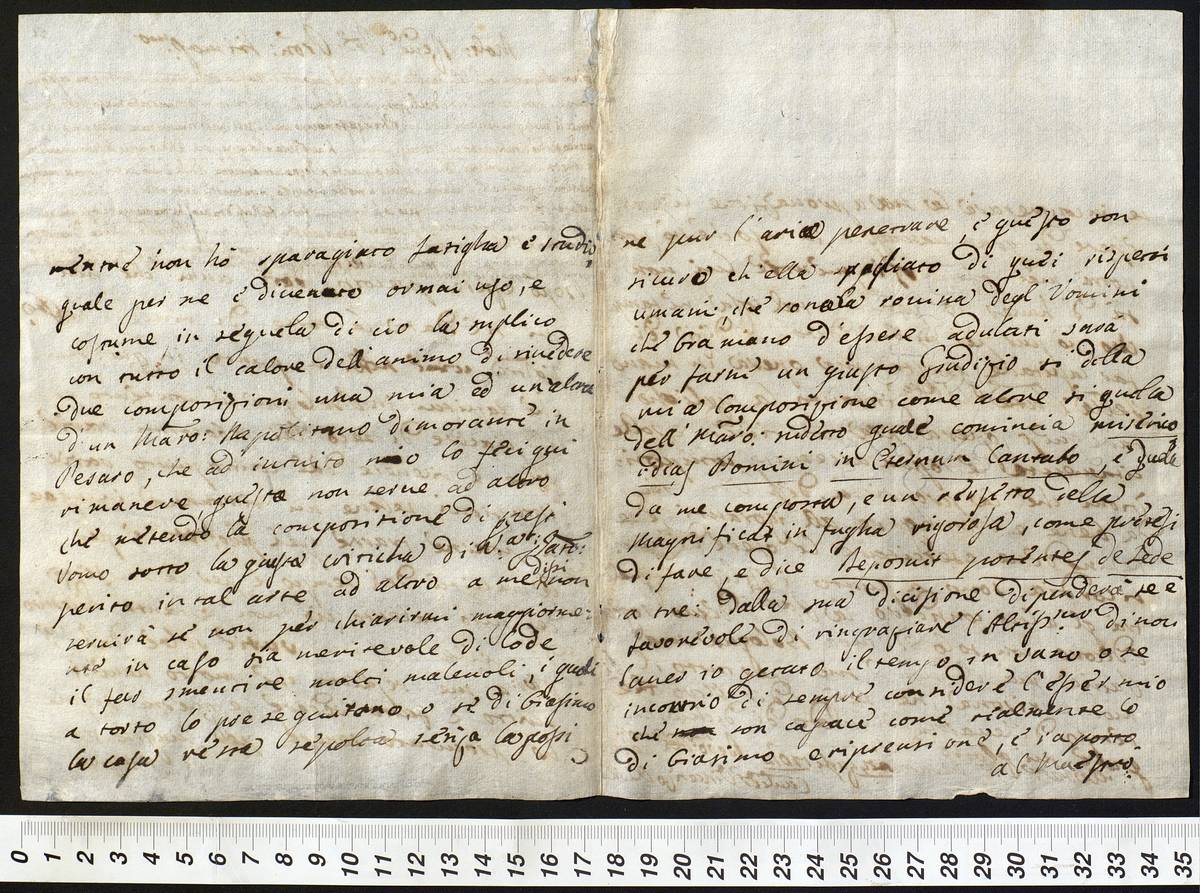 mentre non hò sparagiato fatigha e studio,
quale per me è divenuto ormai uso, e
costume, in sequela di ciò la suplico
con tutto il calore dell animo di rivedere
due composizioni una mia ed un altra
d'un Maro: Napolitano dimorante in
Pesaro, che ad intuito mio lo feci qui
rimanere, questa non serve ad altro
che metendo la compositione di questi
Uomo sotto la giusta criticha di
perito in tal arte ad altro a me non
servirà se non per chiarirmi maggiorme:
nte in caso sia meritevole di lode
il fare smentire molti malevoli, i quali
a torto lo preseguitano, o se di biasimo
la cosa resta sepolta senza la possi
ne pur l'aria penetrare, e questo son
sicuro ch'ella spogliato di quei rispetti
umani, che son la rovina degl'Uomini
che bramano d'essere adulati saorà
per farne un giusto Giudizio si della
mia Composizione come altre si quella
dell'Maro: sudetto quale comincia misericor
edias Domini in Eternum Cantabo, e quella
da me composta, e un versetto della
Magnificat in fugha rigorosa, come pretesi
di fare, e dice Deposuit potentes de Sede
a tre: dalla sua dicisione dipenderà se e
favorevole di ringraziare l'Altissimo di non
haver io getato il tempo in vano o se
incontrio di sempre considere l'esser mio
che son capace come rialmente lo
di biasimo e riprensione, è
al Maestro: